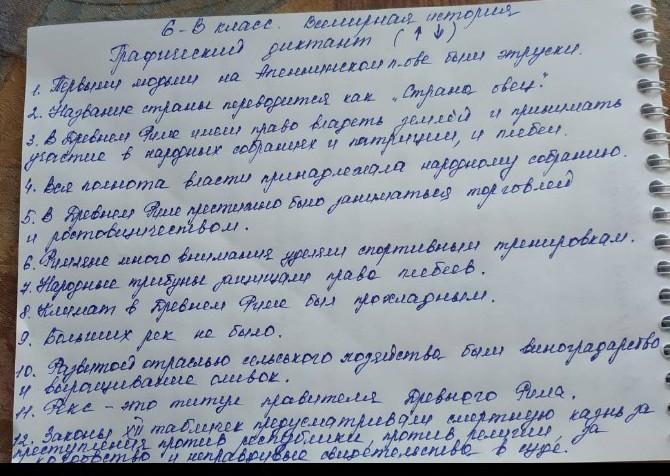 6-В класс. Всемирная история
Графический диктант (↑ ↓)
1. Первыми людьми на Апеннинском п-ове были этруски.
2. Название страны переводится как „Страна овец".
3. В Древнем Риме имели право владеть землёй и принимать
участие в народных собраниях и патриции, и плебеи.
4. Вся полнота власти принадлежала народному собранию.
5. В Древнем Риме престижно было заниматься торговлей
и ростовщичеством.
6. Римляне много внимания уделяли спортивным тренировкам.
7. Народные трибуны защищали права плебеев.
8. Климат в Древнем Риме был прохладным.
9. Больших рек не было.
10. Развитой отраслью сельского хозяйства были виноградарство
и выращивание оливок.
11. Рекс - это титул правителя Древнего Рима.
12. Законы XII табличек предусматривали смертную казнь за
преступления против республики, против религии, за
колдовство и неправдивые свидетельства в суде.